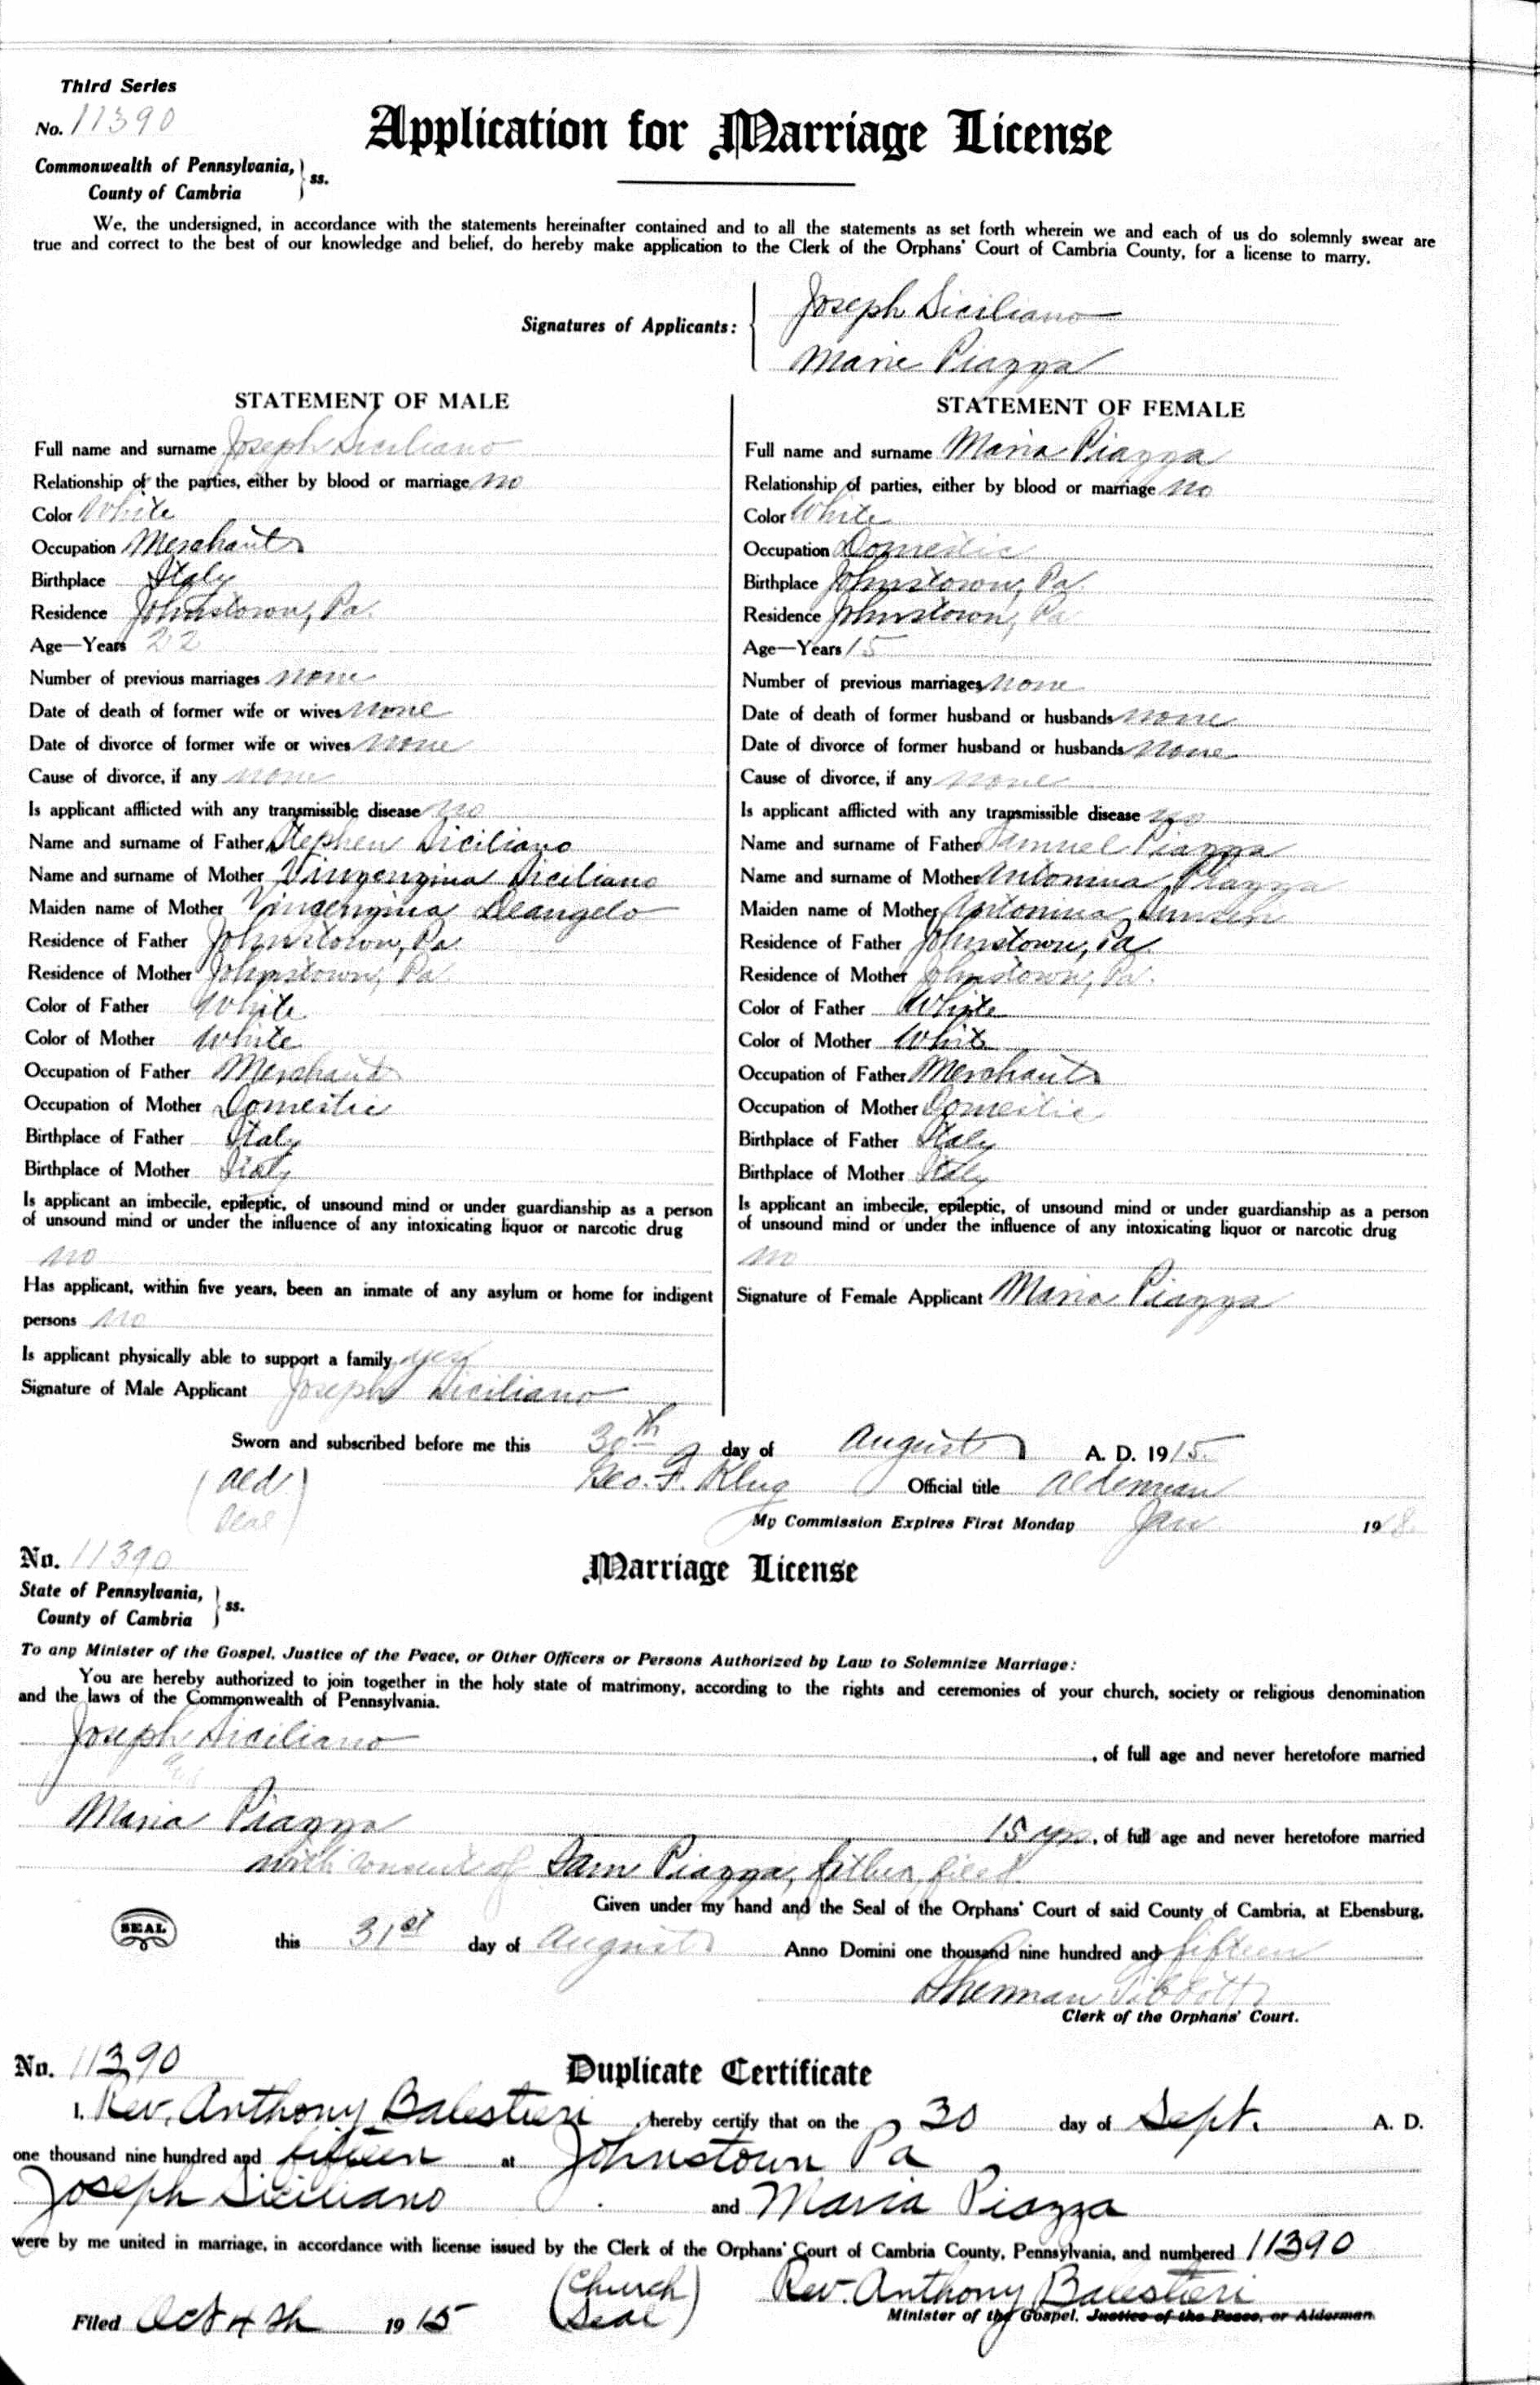 Third Series
No. 11390
Application for Marriage License
Commonwealth of Pennsylvania,
County of Cambria
ss.
We, the undersigned, in accordance with the statements hereinafter contained and to all the statements as set forth wherein we and each of us do solemnly swear are
true and correct to the best of our knowledge and belief, do hereby make application to the Clerk of the Orphans' Court of Cambria County, for a license to marry.
Signatures of Applicants:
Joseph Siciliano
Marie Piazza
STATEMENT OF MALE
Full name and surname Joseph Siciliano
Relationship of the parties, either by blood or marriage no
Color White
Occupation Merchant
Birthplace Italy
Residence Johnstown, Pa.
Age—Years 22
Number of previous marriages none
Date of death of former wife or wives none
Date of divorce of former wife or wives none
Cause of divorce, if any none
Is applicant afflicted with any transmissible disease no
Name and surname of Father Stephen Siciliano
Name and surname of Mother Vingengina Siciliano
Maiden name of Mother Vingengina Deangelo
Residence of Father Johnstown, Pa.
Residence of Mother Johnstown, Pa.
Color of Father White
Color of Mother White
Occupation of Father Merchant
Occupation of Mother Domestic
Birthplace of Father Italy
Birthplace of Mother Italy
Is applicant an imbecile, epileptic, of unsound mind or under guardianship as a person
of unsound mind or under the influence of any intoxicating liquor or narcotic drug
no
Has applicant, within five years, been an inmate of any asylum or home for indigent
persons no
Is applicant physically able to support a family yes
Signature of Male Applicant Joseph Siciliano
STATEMENT OF FEMALE
Full name and surname Maria Piazza
Relationship of parties, either by blood or marriage no
Color White
Occupation Domestic
Birthplace Johnstown, Pa.
Residence Johnstown, Pa
Age—Years 15
Number of previous marriages none
Date of death of former husband or husbands none
Date of divorce of former husband or husbands none
Cause of divorce, if any none
Is applicant afflicted with any transmissible disease no
Name and surname of Father Samuel Piazza
Name and surname of Mother Antonina Piazza
Maiden name of Mother Antonina
Residence of Father Johnstown, Pa.
Residence of Mother Johnstown, Pa.
Color of Father White
Color of Mother White
Occupation of Father Merchant
Occupation of Mother Domestic
Birthplace of Father Italy
Birthplace of Mother Italy
Is applicant an imbecile, epileptic, of unsound mind or under guardianship as a person
of unsound mind or under the influence of any intoxicating liquor or narcotic drug
no
Signature of Female Applicant Maria Piazza
Sworn and subscribed before me this 30th day of August A. D. 1915.
(Ald Seal)
Geo. F. Klug Official title Alderman
My Commission Expires First Monday Jan 1918.
No. 11390
Marriage License
State of Pennsylvania,
County of Cambria
ss.
To any Minister of the Gospel, Justice of the Peace, or Other Officers or Persons Authorized by Law to Solemnize Marriage:
You are hereby authorized to join together in the holy state of matrimony, according to the rights and ceremonies of your church, society or religious denomination
and the laws of the Commonwealth of Pennsylvania.
Joseph Siciliano, of full age and never heretofore married
and
Maria Piazza 15 yrs, of full age and never heretofore married
with consent of Sam Piazza, father, filed
Given under my hand and the Seal of the Orphans' Court of said County of Cambria, at Ebensburg,
SEAL
this 31st day of August Anno Domini one thousand nine hundred and fifteen
Sherman Tibbott
Clerk of the Orphans' Court.
No. 11390
Duplicate Certificate
I, Rev. Anthony Balestieri, hereby certify that on the 30 day of Sept. A. D.
one thousand nine hundred and fifteen at Johnstown Pa
Joseph Siciliano and Maria Piazza
were by me united in marriage, in accordance with license issued by the Clerk of the Orphans' Court of Cambria County, Pennsylvania, and numbered 11390
(Church Seal)
Rev. Anthony Balestieri
Minister of the Gospel, Justice of the Peace, or Alderman
Filed Oct 4th 1915